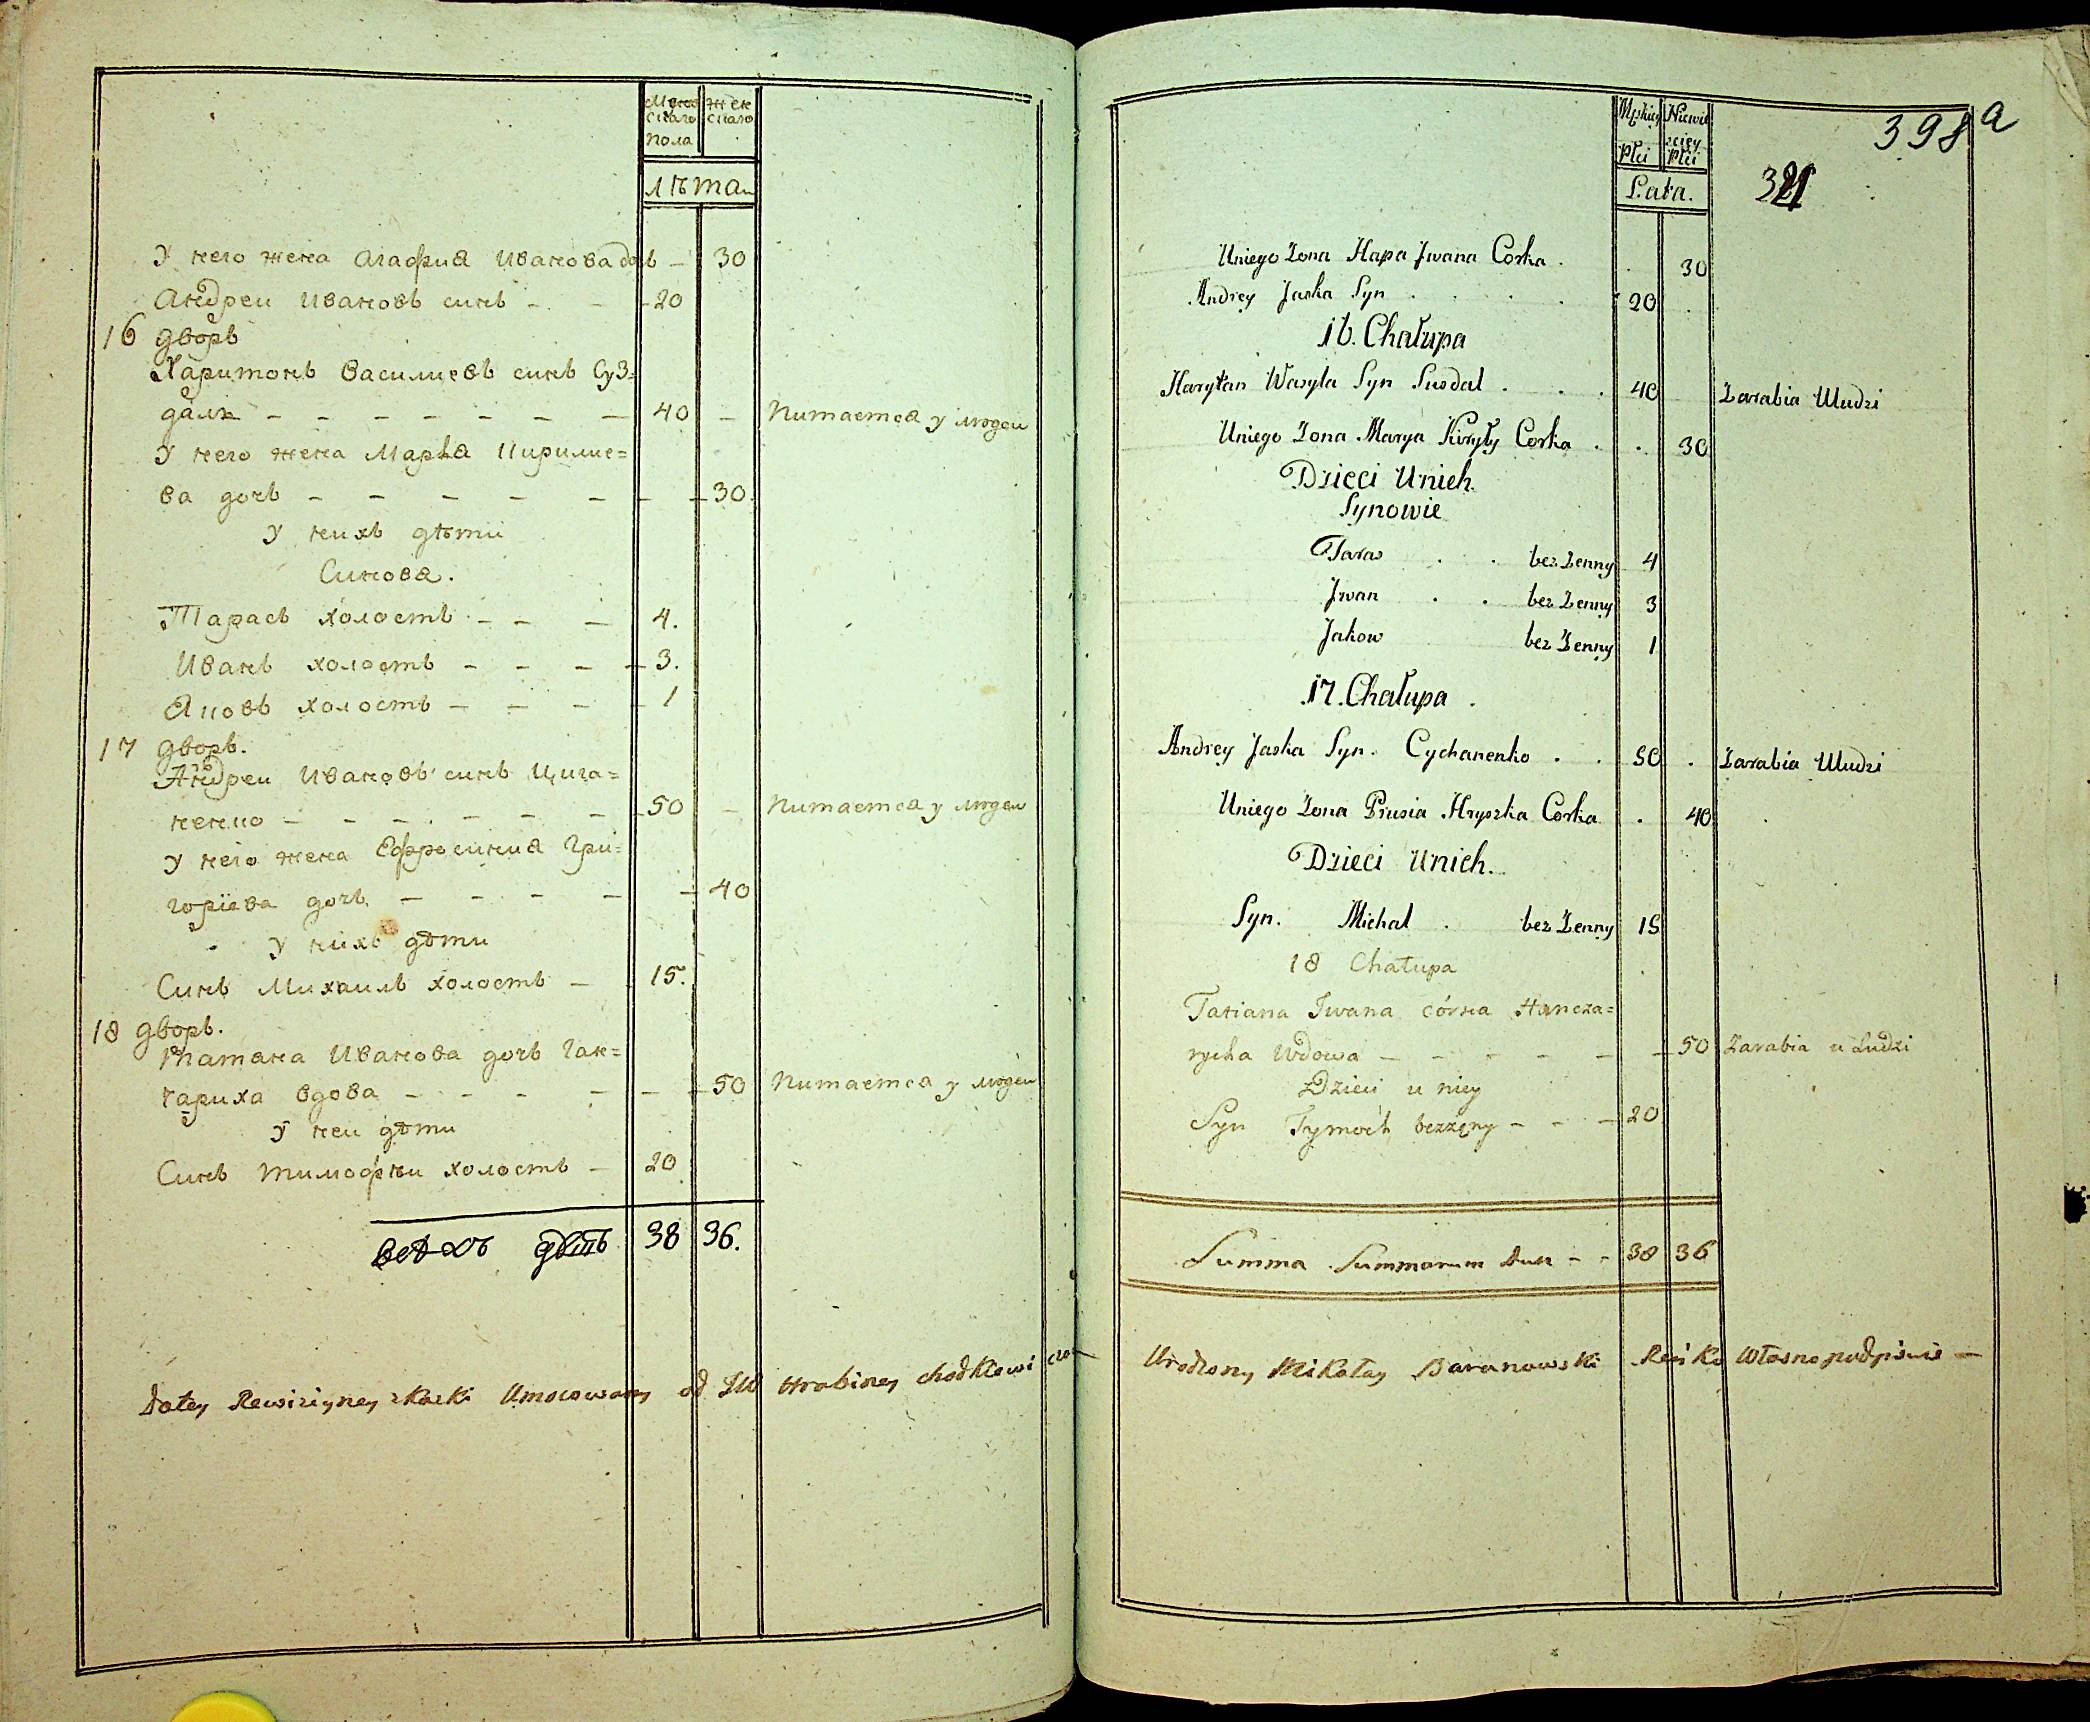 Мужескаго Пола
Женскаго
лѣта
У него жена Агафия Иванова дочь – 30
Андреи Ивановъ синъ – – 20
16 дворъ
Харитонъ Василиевъ синъ Суз=
далъ – – – – – – – 40 – питается у людеи
У него жена Маря Кирилие=
ва дочь – – – – – – – 30.
У нихъ дѣти
Синова.
Тарасъ холостъ – – – 4.
Иванъ холостъ – – – – 3.
Яковъ холостъ – – – – 1
17 дворъ.
Андреи Ивановъ синъ Цига=
ненко – – – – – – – 50 – питается у людеи
У него жена Ефросиния Гри=
горіева дочь – – – – – 40
У нихъ дѣти
Синъ Михаилъ холостъ – 15.
18 дворъ.
Татана Иванова дочь Ган=
чариха вдова – – – – – – 50 питается у людеи
У неи дѣти
Синъ Тимофѣи холостъ – 20
всѣхъ душъ 38 36.
Do tey Rewizijney skaski Umocowany od JW Hrabiney Chodkiewiczo
Męskiey Płci
Niewieściey Płci
Lata.
398 a
321
Uniego Żona Hapa Jwana Corka . . 30
Andrey Jaska Syn . . . . 20
16. Chałupa
Harytan Wasyla Syn Susdal . . . 40 Zarabia Uludzi
Uniego Żona Marya Kiryły Corka . . 30
Dzieci Unich.
Synowie
Taras . . bez Żenny 4
Jwan . . bez Żenny 3
Jakow bez Żenny 1
17. Chałupa .
Andrey Jaska Syn. Cychanenko . . 50 . Zarabia Uludzi
Uniego Żona Prusia Hryszka Corka . 40
Dzieci Unich.
Syn. Michal . bez Żenny 15
18 Chałupa
Tatiana Iwana córka Hancza=
rycha Wdowa – – – – – – 50 Zarabia u Ludzi
Dzieci u niey
Syn Tymoch bezżęny – – – 20
Summa Summarum dusz – – 38 36
Urodzony Mikołay Baranowski Ręiko Własno podpisuie –